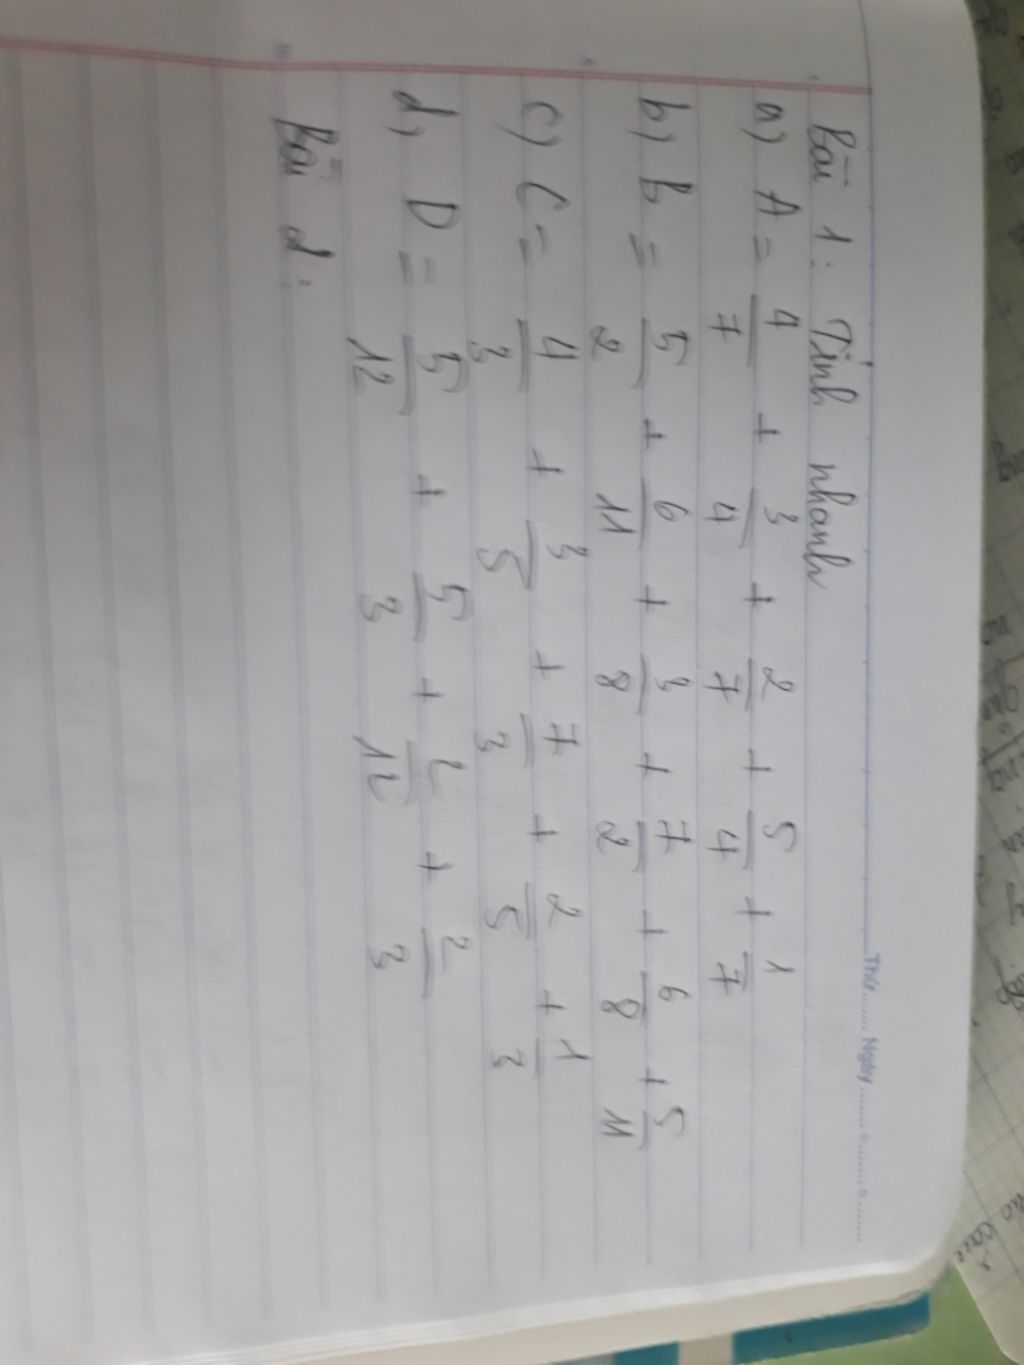 Thứ........ Ngày................
Bài 1: Tính nhanh
a) A = 4/7 + 3/4 + 2/7 + 5/4 + 1/7
b) B = 5/2 + 6/11 + 3/8 + 7/2 + 6/8 + 5/11
c) C = 4/3 + 3/5 + 7/3 + 2/5 + 1/3
d) D = 5/12 + 5/3 + 2/12 + 2/3
Bài d: